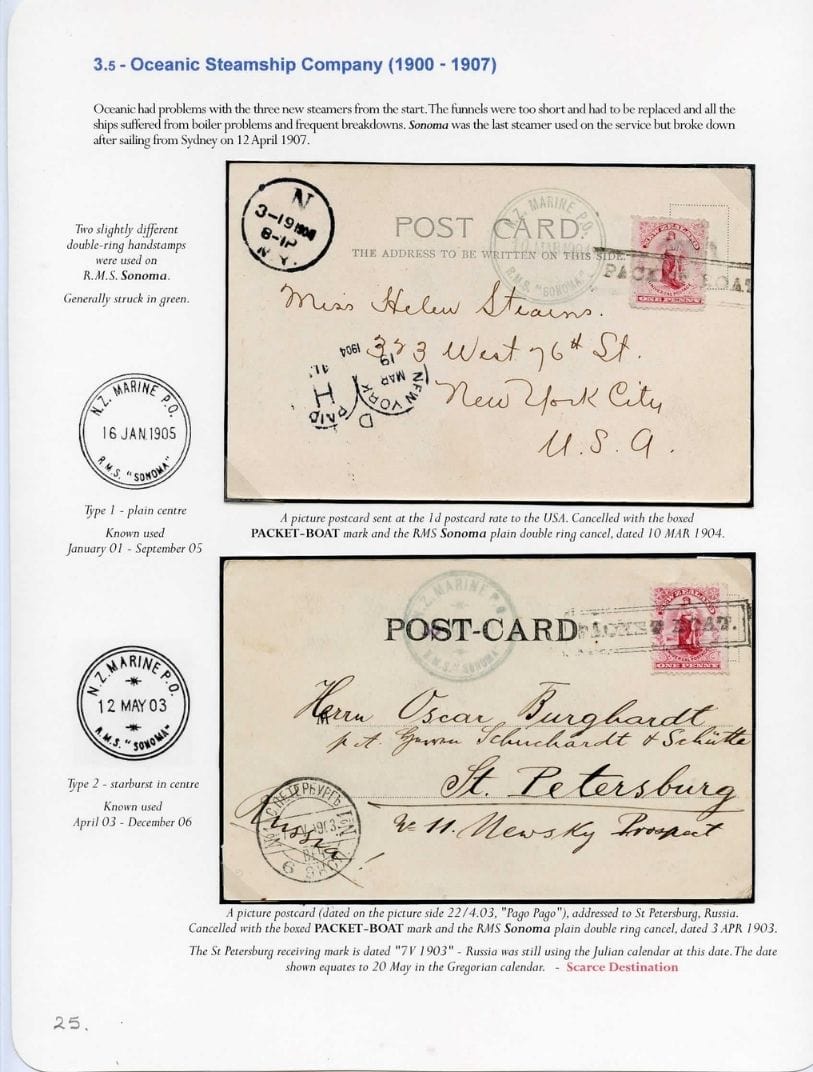 3.5 - Oceanic Steamship Company (1900 - 1907)
Oceanic had problems with the three new steamers from the start. The funnels were too short and had to be replaced and all the
ships suffered from boiler problems and frequent breakdowns. Sonoma was the last steamer used on the service but broke down
after sailing from Sydney on 12 April 1907.
Two slightly different
double-ring handstamps
were used on
R.M.S. Sonoma.
Generally struck in green.
N.Z. MARINE P.O.
16 JAN.1905
R.M.S. "SONOMA"
Type 1 - plain centre
Known used
January 01 - September 05
N
3-19 1904
N.Y.
POST CARD.
THE ADDRESS TO BE WRITTEN ON THIS SIDE
N.Z. MARINE P.O.
10 MAR 1904
R.M.S. "SONOMA"
NEW ZEALAND
ONE PENNY
PACKET BOAT
Miss Helen Stearns.
323 West 76th St.
New York City
U.S.A.
NEW YORK
MAR
19
1904
PAID
H
D
A picture postcard sent at the 1d postcard rate to the USA. Cancelled with the boxed
PACKET-BOAT mark and the RMS Sonoma plain double ring cancel, dated 10 MAR 1904.
N.Z. MARINE P.O.
12 MAY 03
R.M.S. "SONOMA"
Type 2 - starburst in centre
Known used
April 03 - December 06
N.Z. MARINE P.O.
R.M.S. "SONOMA"
POST-CARD
NEW ZEALAND
ONE PENNY
PACKET BOAT.
Herrn Oscar Burghardt
Schuchardt & Schütte
St. Petersburg
No 11. Newsky Prospect
Russia!
С.ПЕТЕРБУРГЪ
A picture postcard (dated on the picture side 22/4.03, "Pago Pago"), addressed to St Petersburg, Russia.
Cancelled with the boxed PACKET-BOAT mark and the RMS Sonoma plain double ring cancel, dated 3 APR 1903.
The St Petersburg receiving mark is dated "7V 1903" - Russia was still using the Julian calendar at this date. The date
shown equates to 20 May in the Gregorian calendar. - Scarce Destination
25.